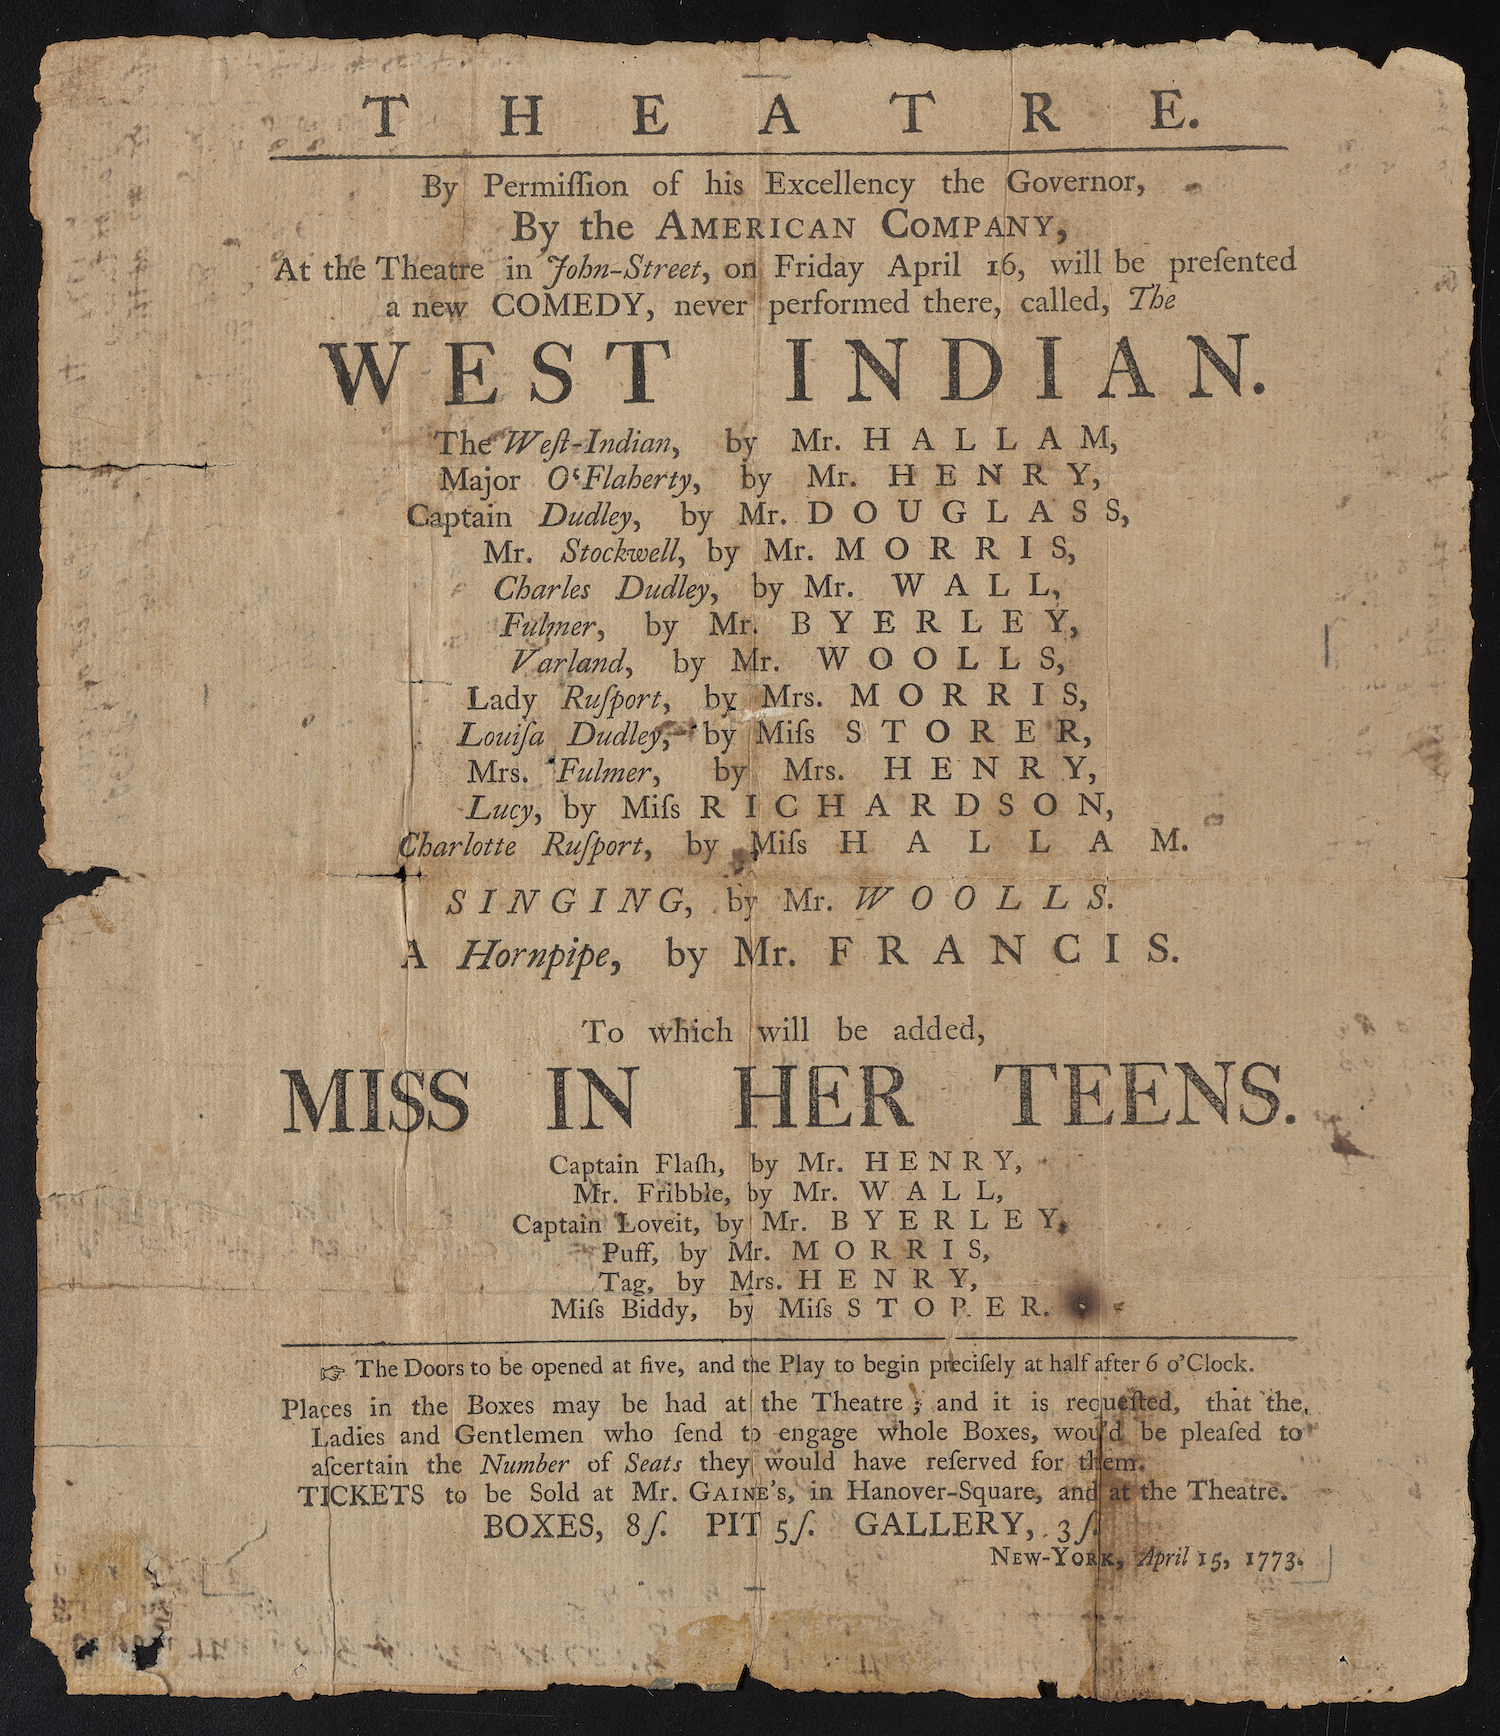 THEATRE.
By Permiſſion of his Excellency the Governor,
By the AMERICAN COMPANY,
At the Theatre in John-Street, on Friday April 16, will be preſented
a new COMEDY, never performed there, called, The
WEST INDIAN.
The Weſt-Indian, by Mr. HALLAM,
Major O‘Flaherty, by Mr. HENRY,
Captain Dudley, by Mr. DOUGLASS,
Mr. Stockwell, by Mr. MORRIS,
Charles Dudley, by Mr. WALL,
Fulmer, by Mr. BYERLEY,
Varland, by Mr. WOOLLS,
Lady Ruſport, by Mrs. MORRIS,
Louiſa Dudley, by Miſs STORER,
Mrs. Fulmer, by Mrs. HENRY,
Lucy, by Miſs RICHARDSON,
Charlotte Ruſport, by Miſs HALLAM.
SINGING, by Mr. WOOLLS.
A Hornpipe, by Mr. FRANCIS.
To which will be added,
MISS IN HER TEENS.
Captain Flaſh, by Mr. HENRY,
Mr. Fribble, by Mr. WALL,
Captain Loveit, by Mr. BYERLEY,
Puff, by Mr. MORRIS,
Tag, by Mrs. HENRY,
Miſs Biddy, by Miſs STORER.
☞ The Doors to be opened at five, and the Play to begin preciſely at half after 6 o'Clock.
Places in the Boxes may be had at the Theatre; and it is requeſted, that the
Ladies and Gentlemen who ſend to engage whole Boxes, wou'd be pleaſed to
aſcertain the Number of Seats they would have reſerved for them.
TICKETS to be Sold at Mr. GAINE's, in Hanover-Square, and at the Theatre.
BOXES, 8ſ. PIT 5ſ. GALLERY, 3ſ.
NEW-YORK, April 15, 1773.